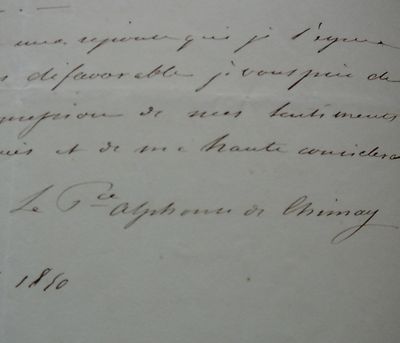 une réponse que je l'espere
défavorable je vous prie de
pression de mes sentiments
et de ma haute considera
Le Pce Alphonse de Chimay
1850